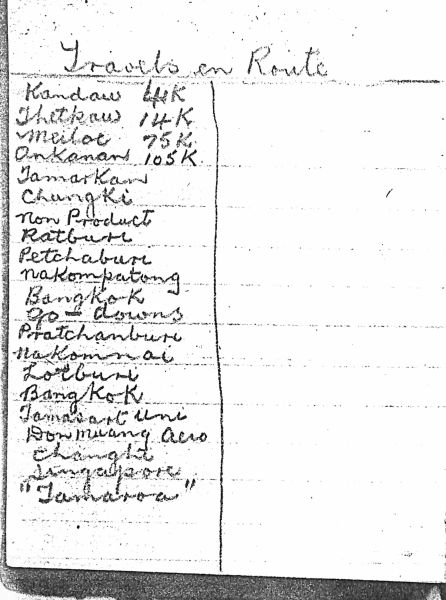 Travels en Route
Kandaw 4K
Thetkaw 14K
Meiloe 75K
Ankanan 105K
Tamarkan
Chungki
Non Product
Ratburi
Petchaburi
Nakompatong
Bangkok
go-downs
Pratchanburi
Nakomnai
Lotburi
Bangkok
Tamasart Uni
Don Muang Aero
Changhi
Singapore
"Tamaroa"